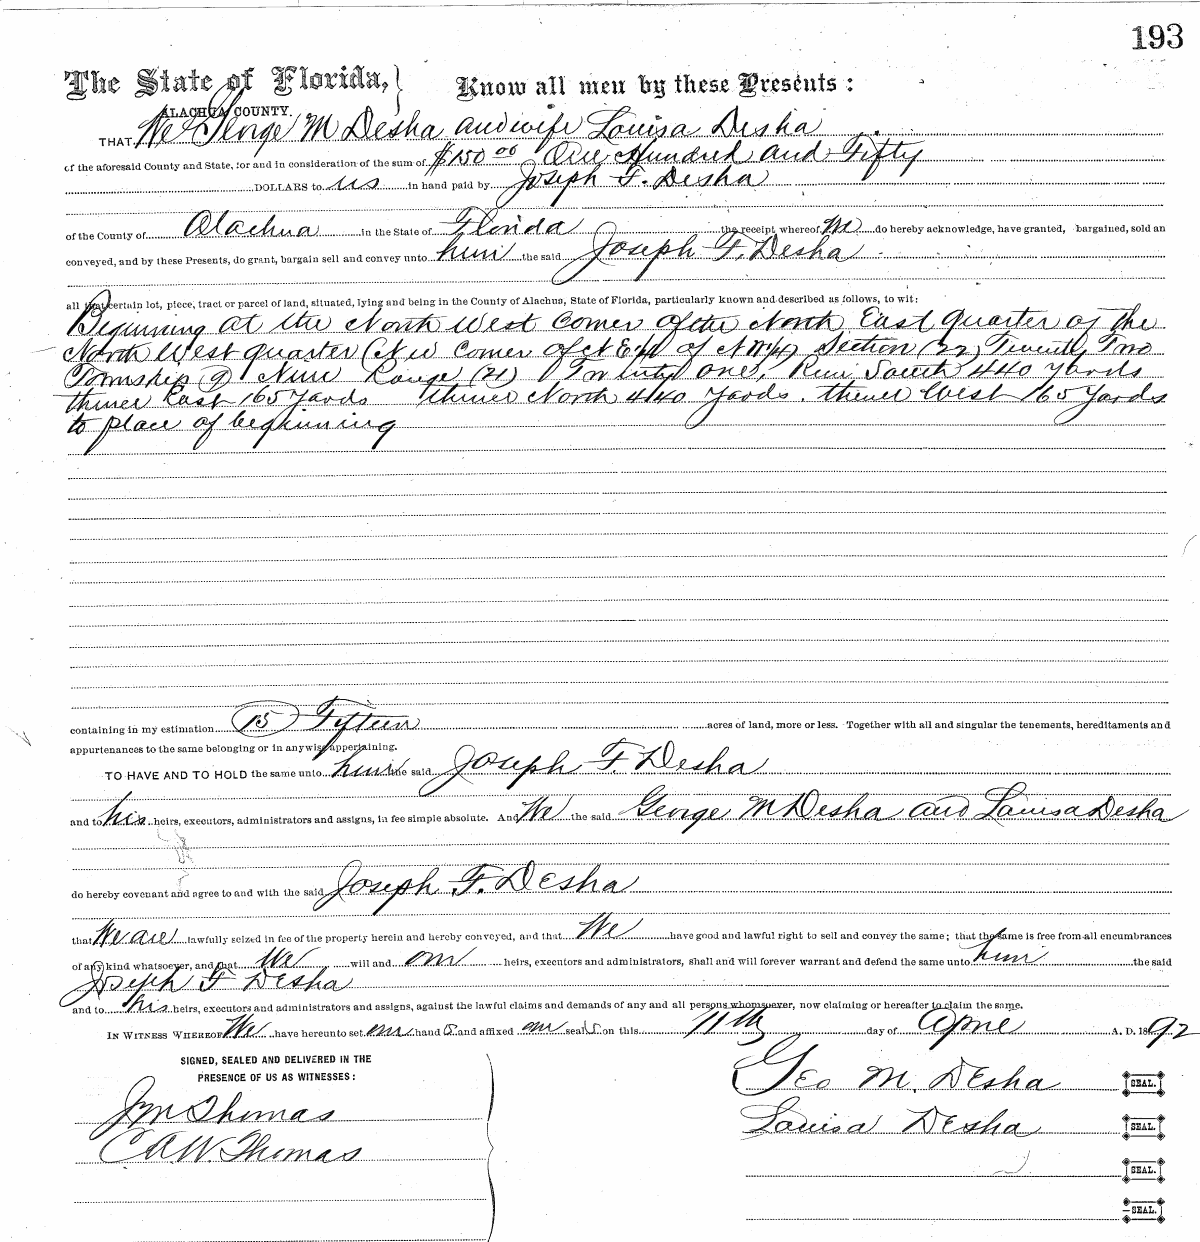 193
The State of Florida, } Know all men by these Presents :
ALACHUA COUNTY.
THAT We George M Desha and wife Louisa Desha
of the aforesaid County and State, for and in consideration of the sum of $150 00 One Hundred and Fifty
DOLLARS to us in hand paid by Joseph F. Desha
of the County of Alachua in the State of Florida the receipt whereof do hereby acknowledge, have granted, bargained, sold an
conveyed, and by these Presents, do grant, bargain sell and convey unto him the said Joseph F. Desha
all that certain lot, piece, tract or parcel of land, situated, lying and being in the County of Alachua, State of Florida, particularly known and described as follows, to wit:
Beginning at the North West Corner of the North East quarter of the
North West quarter (NW Corner of NE 1/4 of NW 1/4) Section (22) Twenty Two
Township 9 Nine Range (21) Twenty one, Run South 440 yards
thence East 165 Yards thence North 440 Yards. thence West 165 Yards
to place of beginning
containing in my estimation (15) Fifteen acres of land, more or less. Together with all and singular the tenements, hereditaments and
appurtenances to the same belonging or in anywise appertaining.
TO HAVE AND TO HOLD the same unto him the said Joseph F. Desha
and to his heirs, executors, administrators and assigns, in fee simple absolute. And We the said George M Desha and Louisa Desha
do hereby covenant and agree to and with the said Joseph F. Desha
that We are lawfully seized in fee of the property herein and hereby conveyed, and that We have good and lawful right to sell and convey the same; that the same is free from all encumbrances
of any kind whatsoever, and that We will and our heirs, executors and administrators, shall and will forever warrant and defend the same unto him the said
Joseph F Desha
and to his heirs, executors and administrators and assigns, against the lawful claims and demands of any and all persons whomsoever, now claiming or hereafter to claim the same.
IN WITNESS WHEREOF We have hereunto set our hand s and affixed our seal s on this 11th day of April A. D. 1892
SIGNED, SEALED AND DELIVERED IN THE
PRESENCE OF US AS WITNESSES :
Geo M. Desha SEAL.
Jm Thomas
Louisa Desha SEAL.
C A W. Thomas
SEAL.
SEAL.